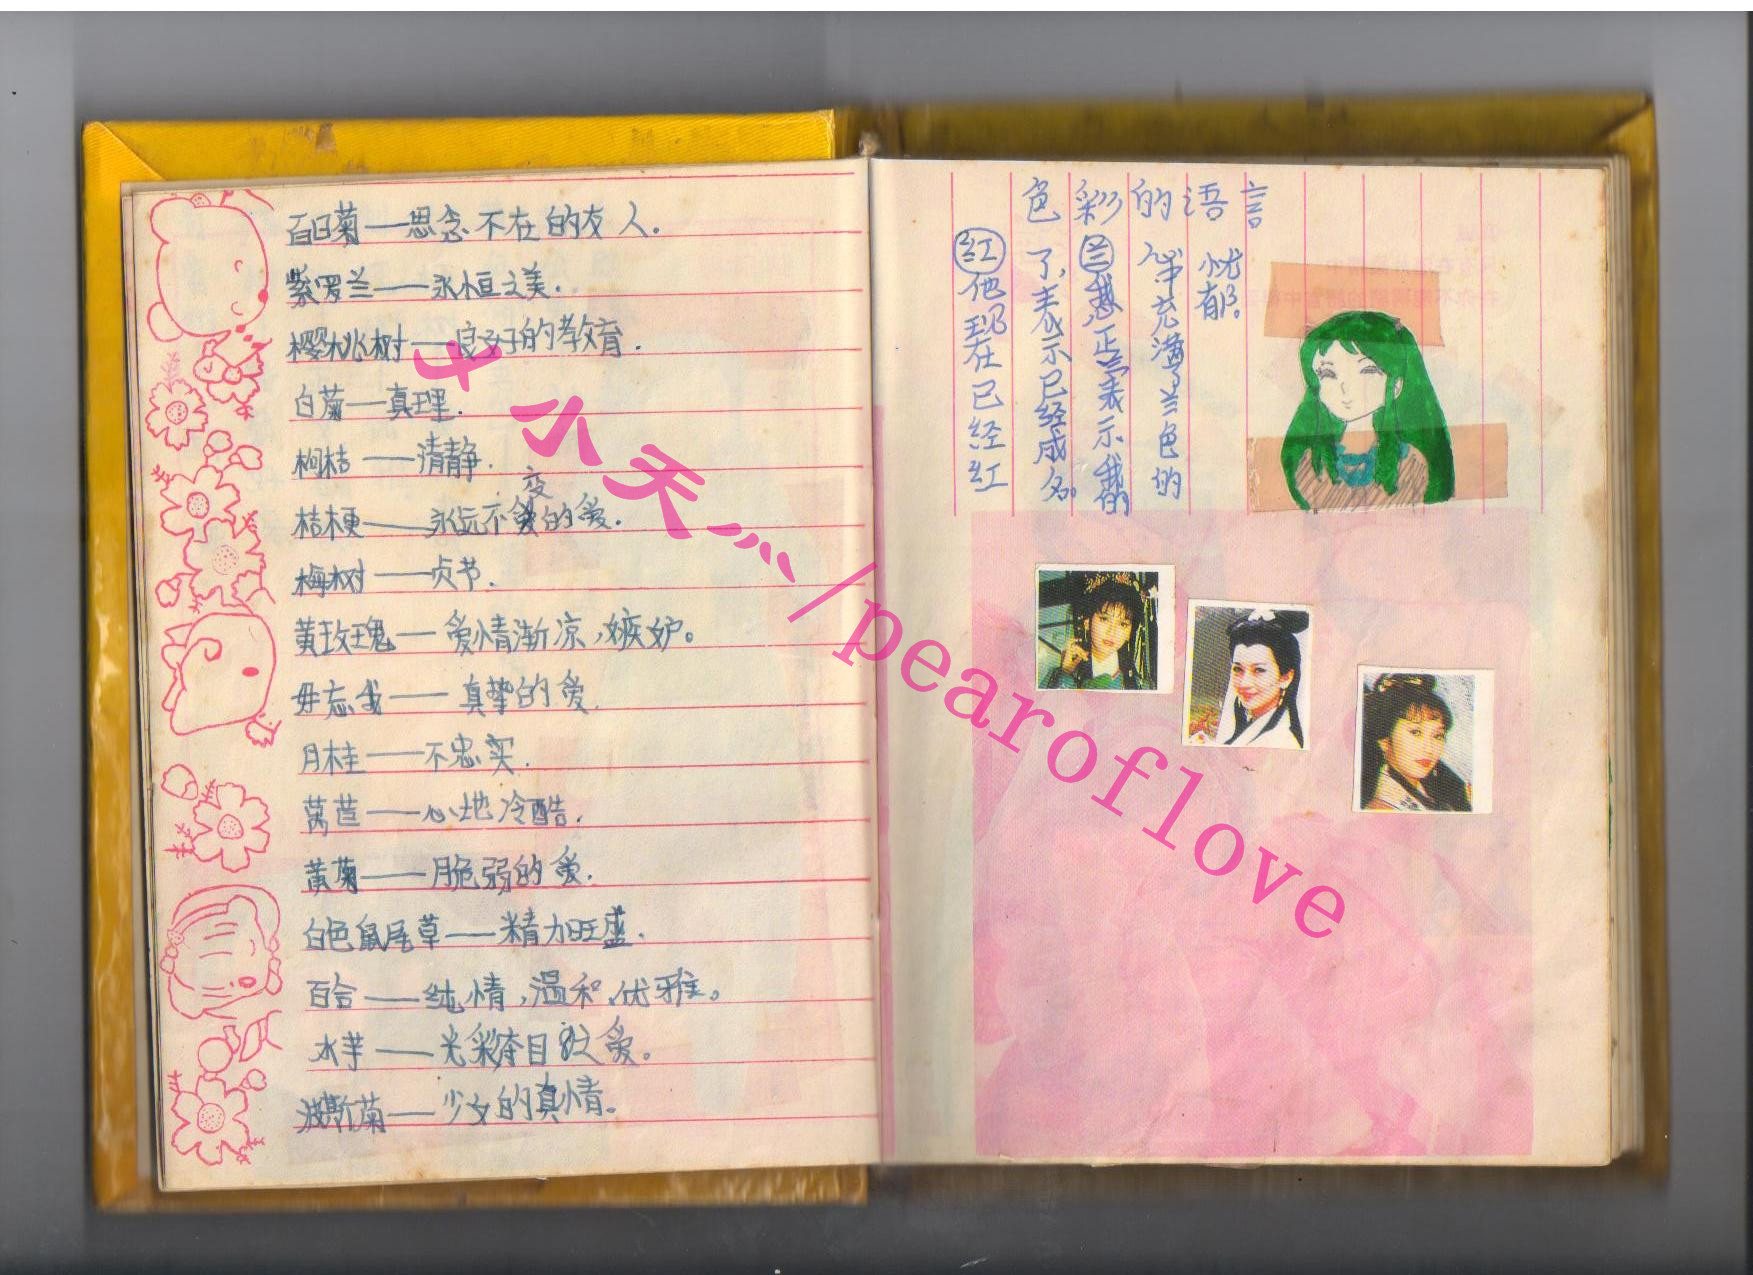 百日菊——思念不在的友人.
紫罗兰——永恒之美.
樱桃树——良好的教育.
白菊——真理.
枸桔——清静.
桔梗——永远不变的爱.
梅树——贞节.
黄玫瑰——爱情渐凉,嫉妒。
毋忘我——真挚的爱.
月桂——不忠实.
莴苣——心地冷酷.
黄菊——脆弱的爱.
白色鼠尾草——精力旺盛.
百合——纯情,温和,优雅。
水芋——光彩夺目的爱。
波斯菊——少女的真情。
色彩的语言
红 他现在已经红
了,表示已经成名。
兰 我 正 表示我的
心中充满兰色的
忧郁。
小天灬/pearoflove